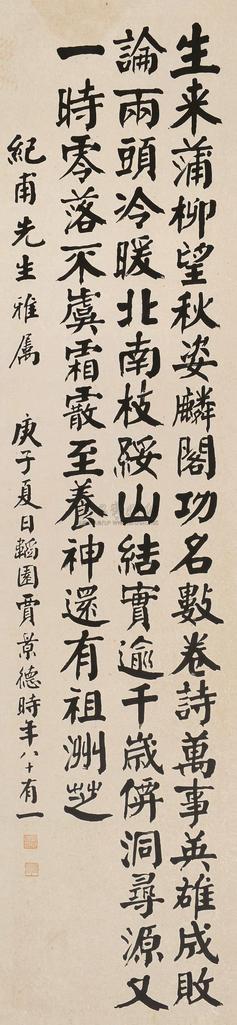 生来蒲柳望秋姿麟閣功名數卷詩萬事英雄成敗
論兩頭冷暖北南枝綏山結實逾千歲僊洞尋源又
一時零落不虞霜霰至養神還有祖洲芝
紀甫先生雅属 庚子夏日韜園賈景德時年八十有一